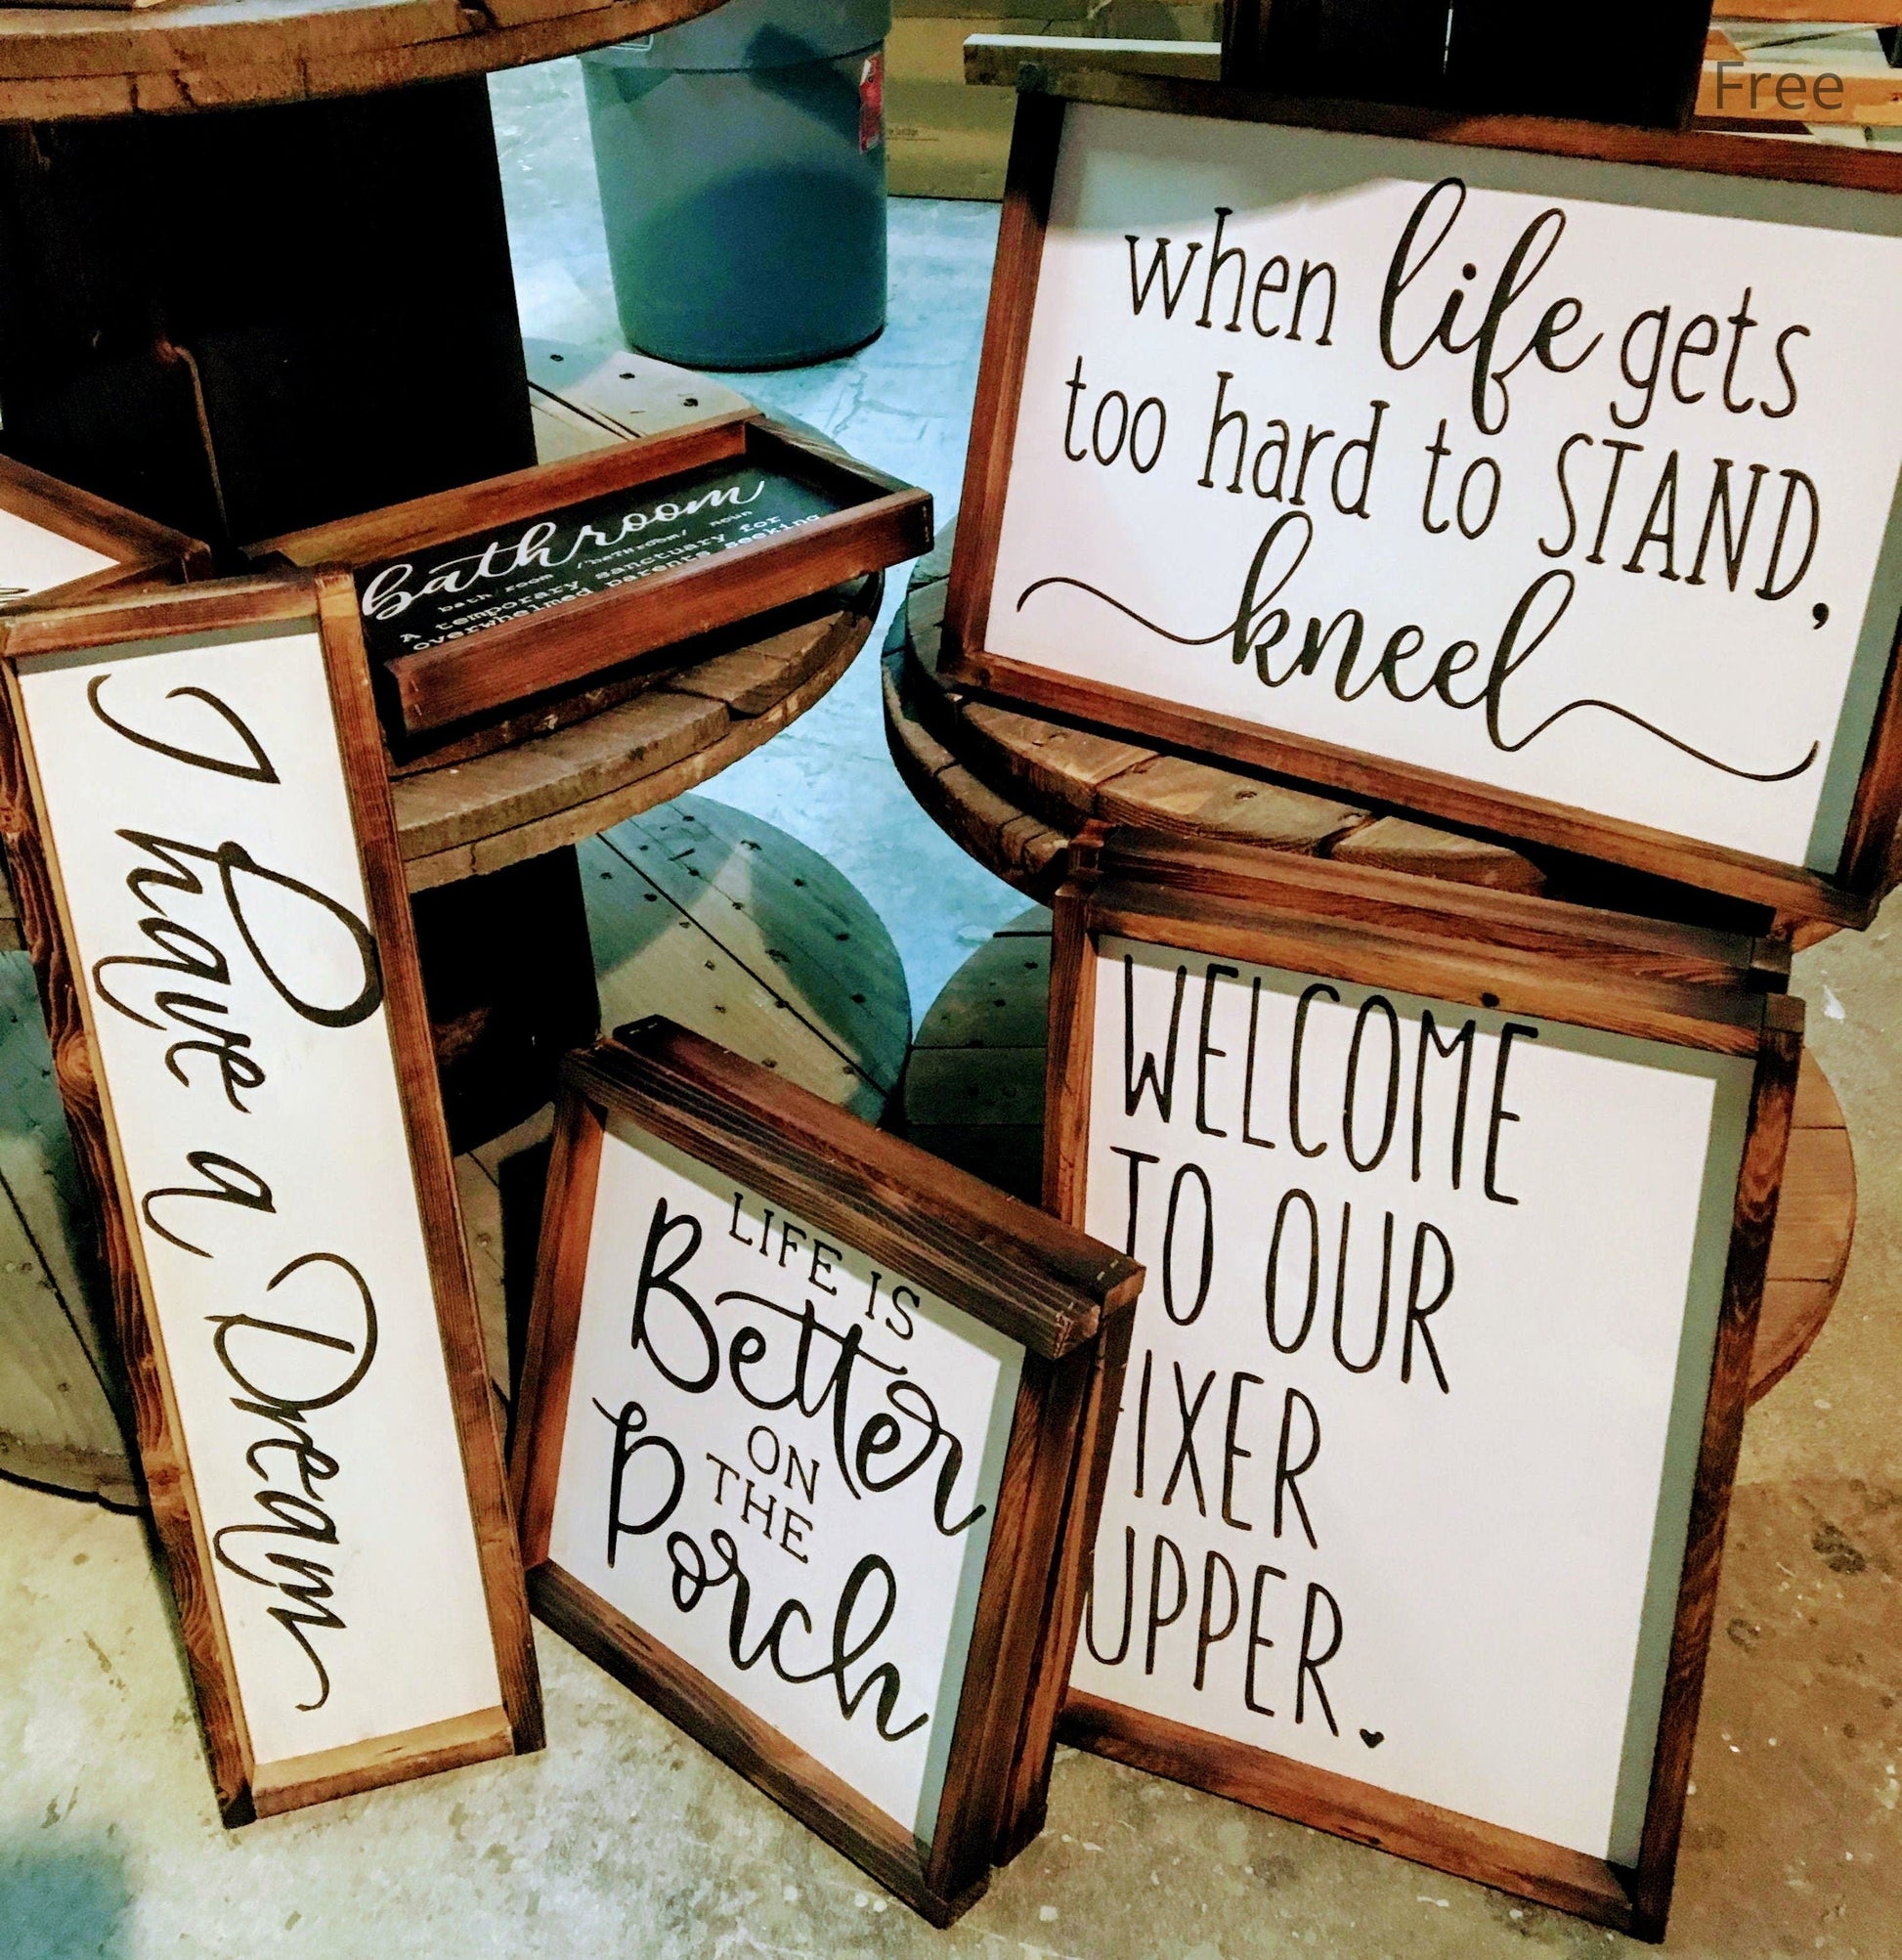 Free
when life gets
too hard to STAND,
kneel
bathroom
bath room /'baTHroom/ noun
A temporary sanctuary for
overwhelmed parents seeking
I have a Dream
LIFE IS
Better
ON
THE
Porch
WELCOME
TO OUR
IXER
UPPER.